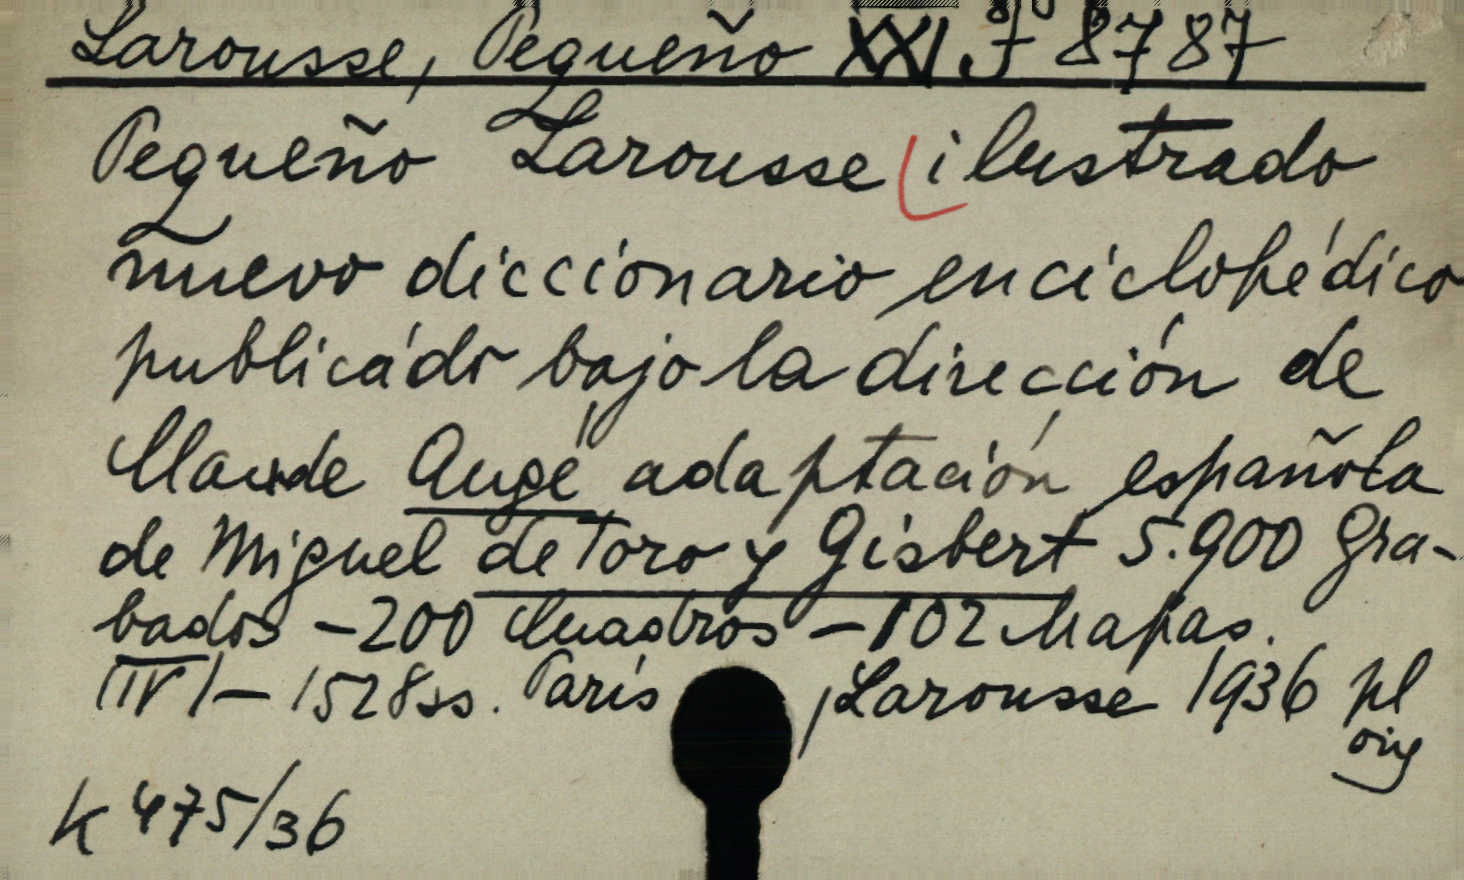 Larousse, Pequeño XXI. J 8787
Pequeño Larousse ilustrado
nuevo diccionario enciclopédico
publicádo bajo la dirección de
Claude Augé adaptación española
de Miguel de Toro y Gisbert 5.900 Gra-
bados - 200 Cuadros - 102 Mapas.
(IV) - 1528 ss. París, Larousse 1936 pl
orig
K 475/36